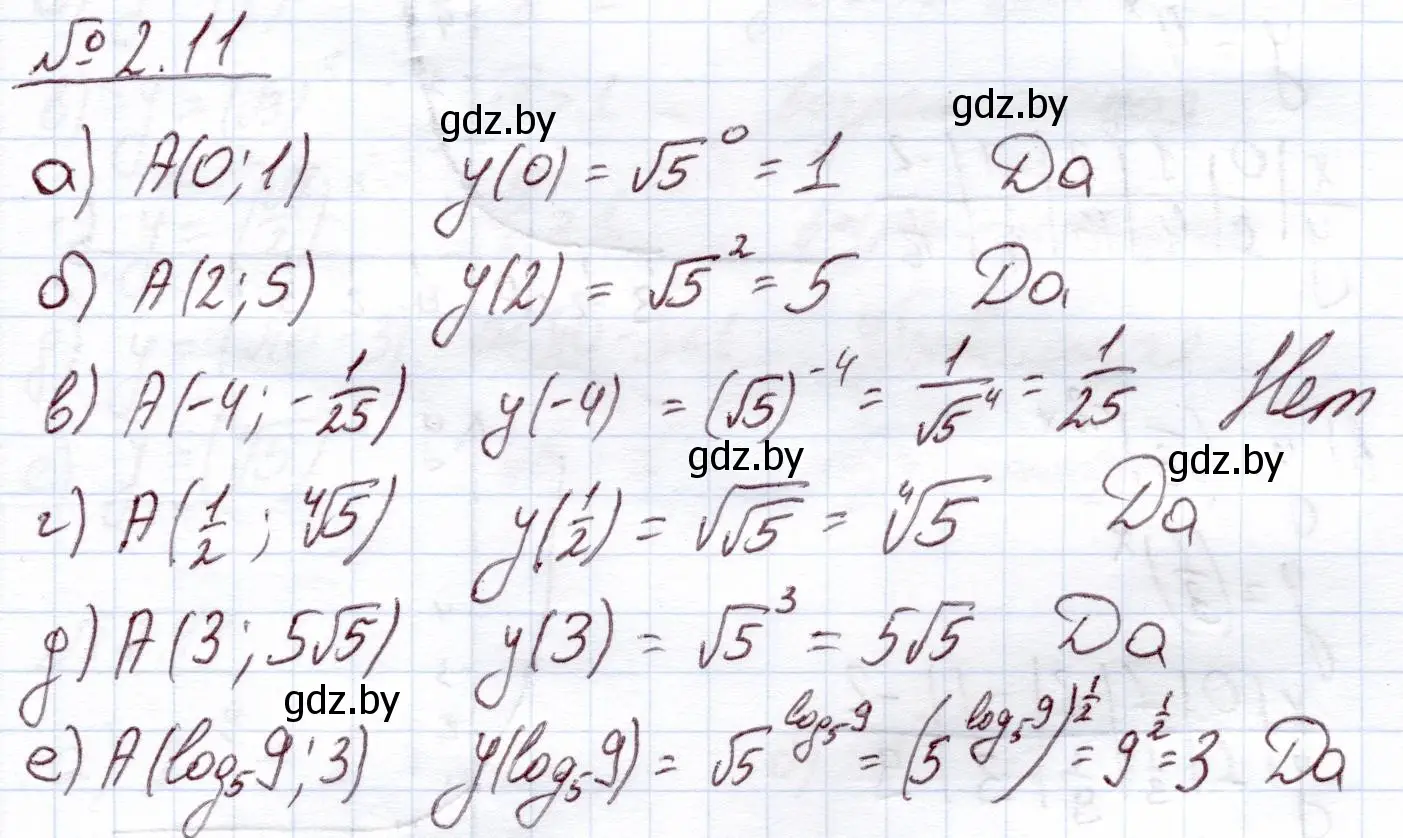 № 2.11
gdz.by gdz.by
а) A(0; 1) y(0) = √5^0 = 1 Да
б) A(2; 5) y(2) = √5^2 = 5 Да
в) A(-4; -1/25) y(-4) = (√5)^-4 = 1/√5^4 = 1/25 Нет
gdz.by gdz.by
г) A(1/2; ∜5) y(1/2) = √√5 = ∜5 Да
д) A(3; 5√5) y(3) = √5^3 = 5√5 Да
gdz.by
е) A(log₅9; 3) y(log₅9) = √5^log₅9 = (5^log₅9)^1/2 = 9^1/2 = 3 Да